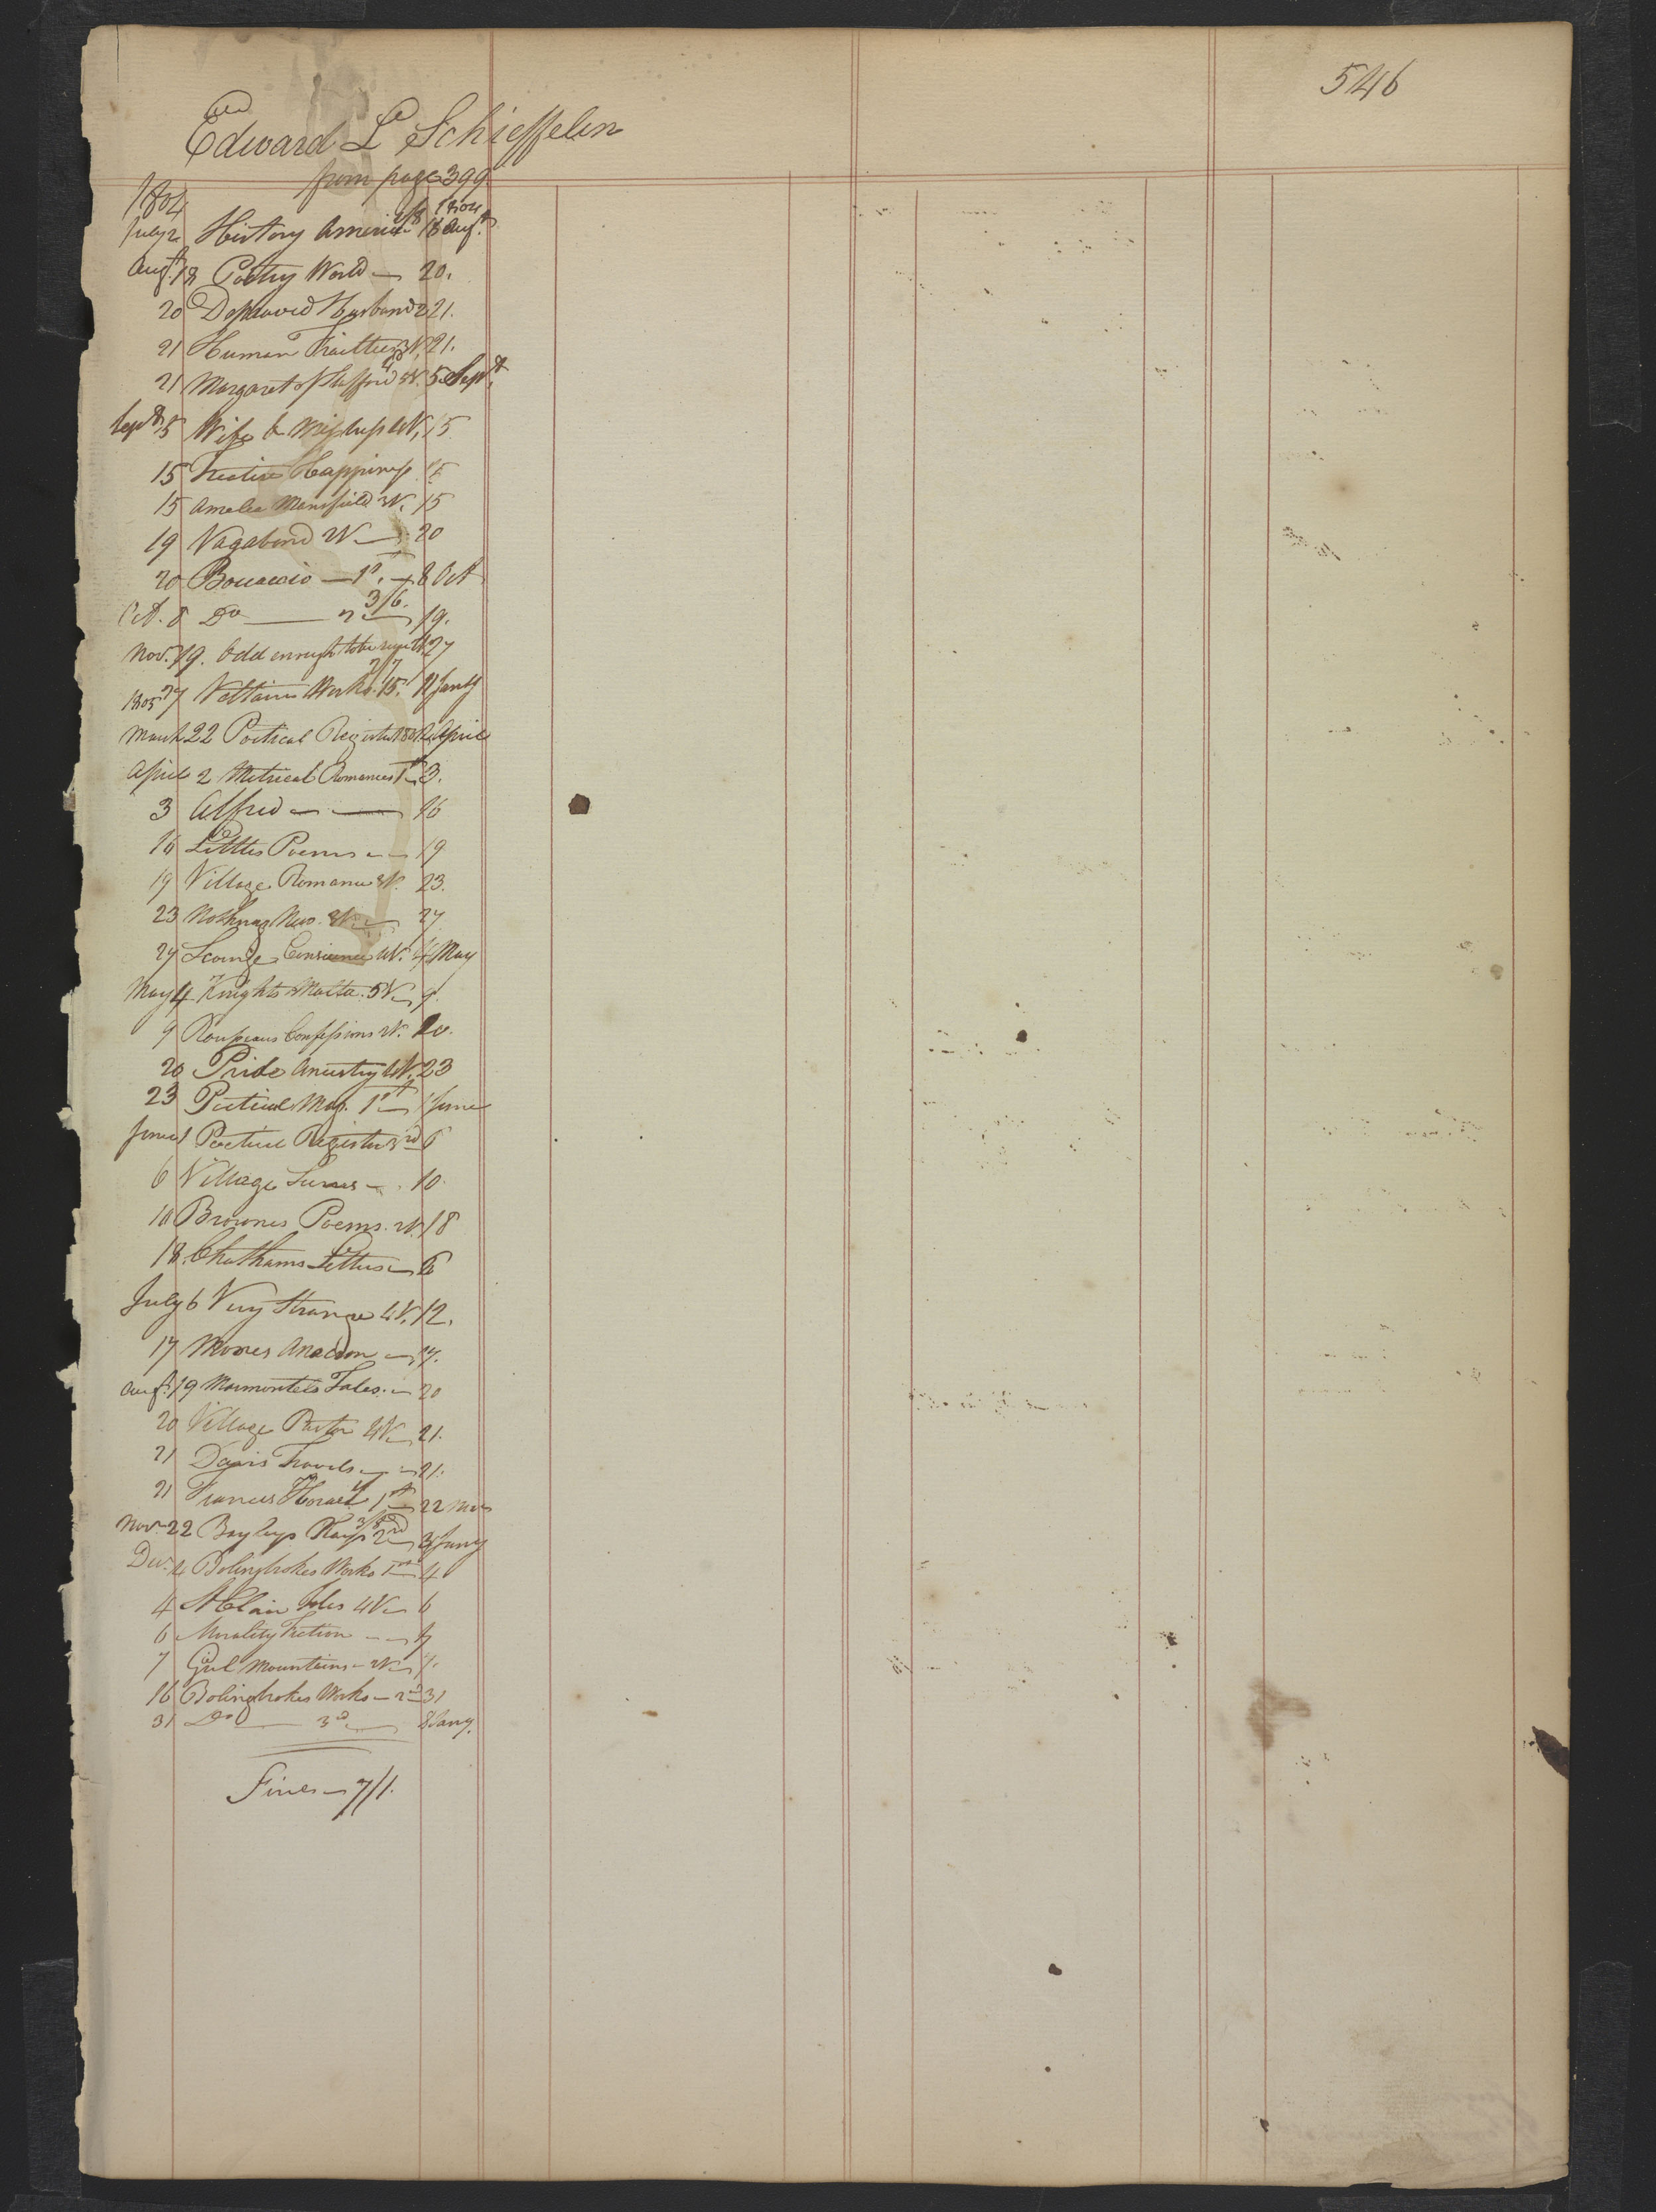 546
Edward L Schieffelin
from page 399
1804
July 2 History America 2/8 18 Augt. 1804
Augt. 18 Poetry World — 20.
20 Depraved Husband 2 21.
21 Human Frailties 3V. 21.
21 Margaret Strafford 5V. 5 Sept.
Sept. 5 Wife & Mistress 4V. 15
15 Festive Happiness 15
15 Amelia Mansfield 3V. 15
19 Vagabond 2V — 20
20 Boccaccio — 1st. — 8 Oct
Oct. 8 Do — 2 3/6. 19.
Nov. 19. Odd enough to be sure 27
27 Voltaires Works. 15. 2/7 11 Jany
1805
March 22 Poetical Register 1801 2 April
April 2 Metrical Romances 1st 3.
3 Alfred — 16
16 Littles Poems — 19
19 Village Romance 2V. 23.
23 Nothing New. 3V. — 27
27 Scourge Conscience 4V. 4 May
May 4 Knights Malta. 5V — 9.
9 Rousseaus Confessions 2V. 20.
20 Pride Ancestry 4V. 23
23 Poetical Mag. 1st — 1 June
June 1 Poetical Register 3rd 6
6 Village Scenes — 10
10 Brownes Poems. 2V. 18
18. Chathams Letters — 6
July 6 Very Strange 4V. 12.
17 Moores Anacreon — 17.
Augt. 19 Marmontels Tales. — 20
20 Village Pastor 4V — 21.
21 Davis Travels — 21.
21 Francis Horace 1st — 22 Nov
Nov. 22 Bayleys Plays 2nd — 3/8 3 Jany
Dec. 4 Bolingbrokes Works 1st — 4
4 St Clair Isles 4V — 6
6 Morality Fiction — 7
7 Girl Mountains — 2V — 7.
16 Bolingbrokes Works — 2d 31
31 Do — 3d — 8 Jany.
Fines — 7/1.